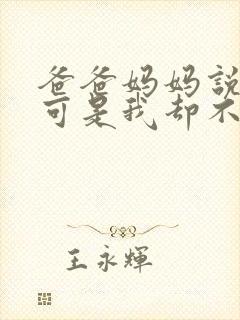 爸爸妈妈說
可是我却不
王永輝